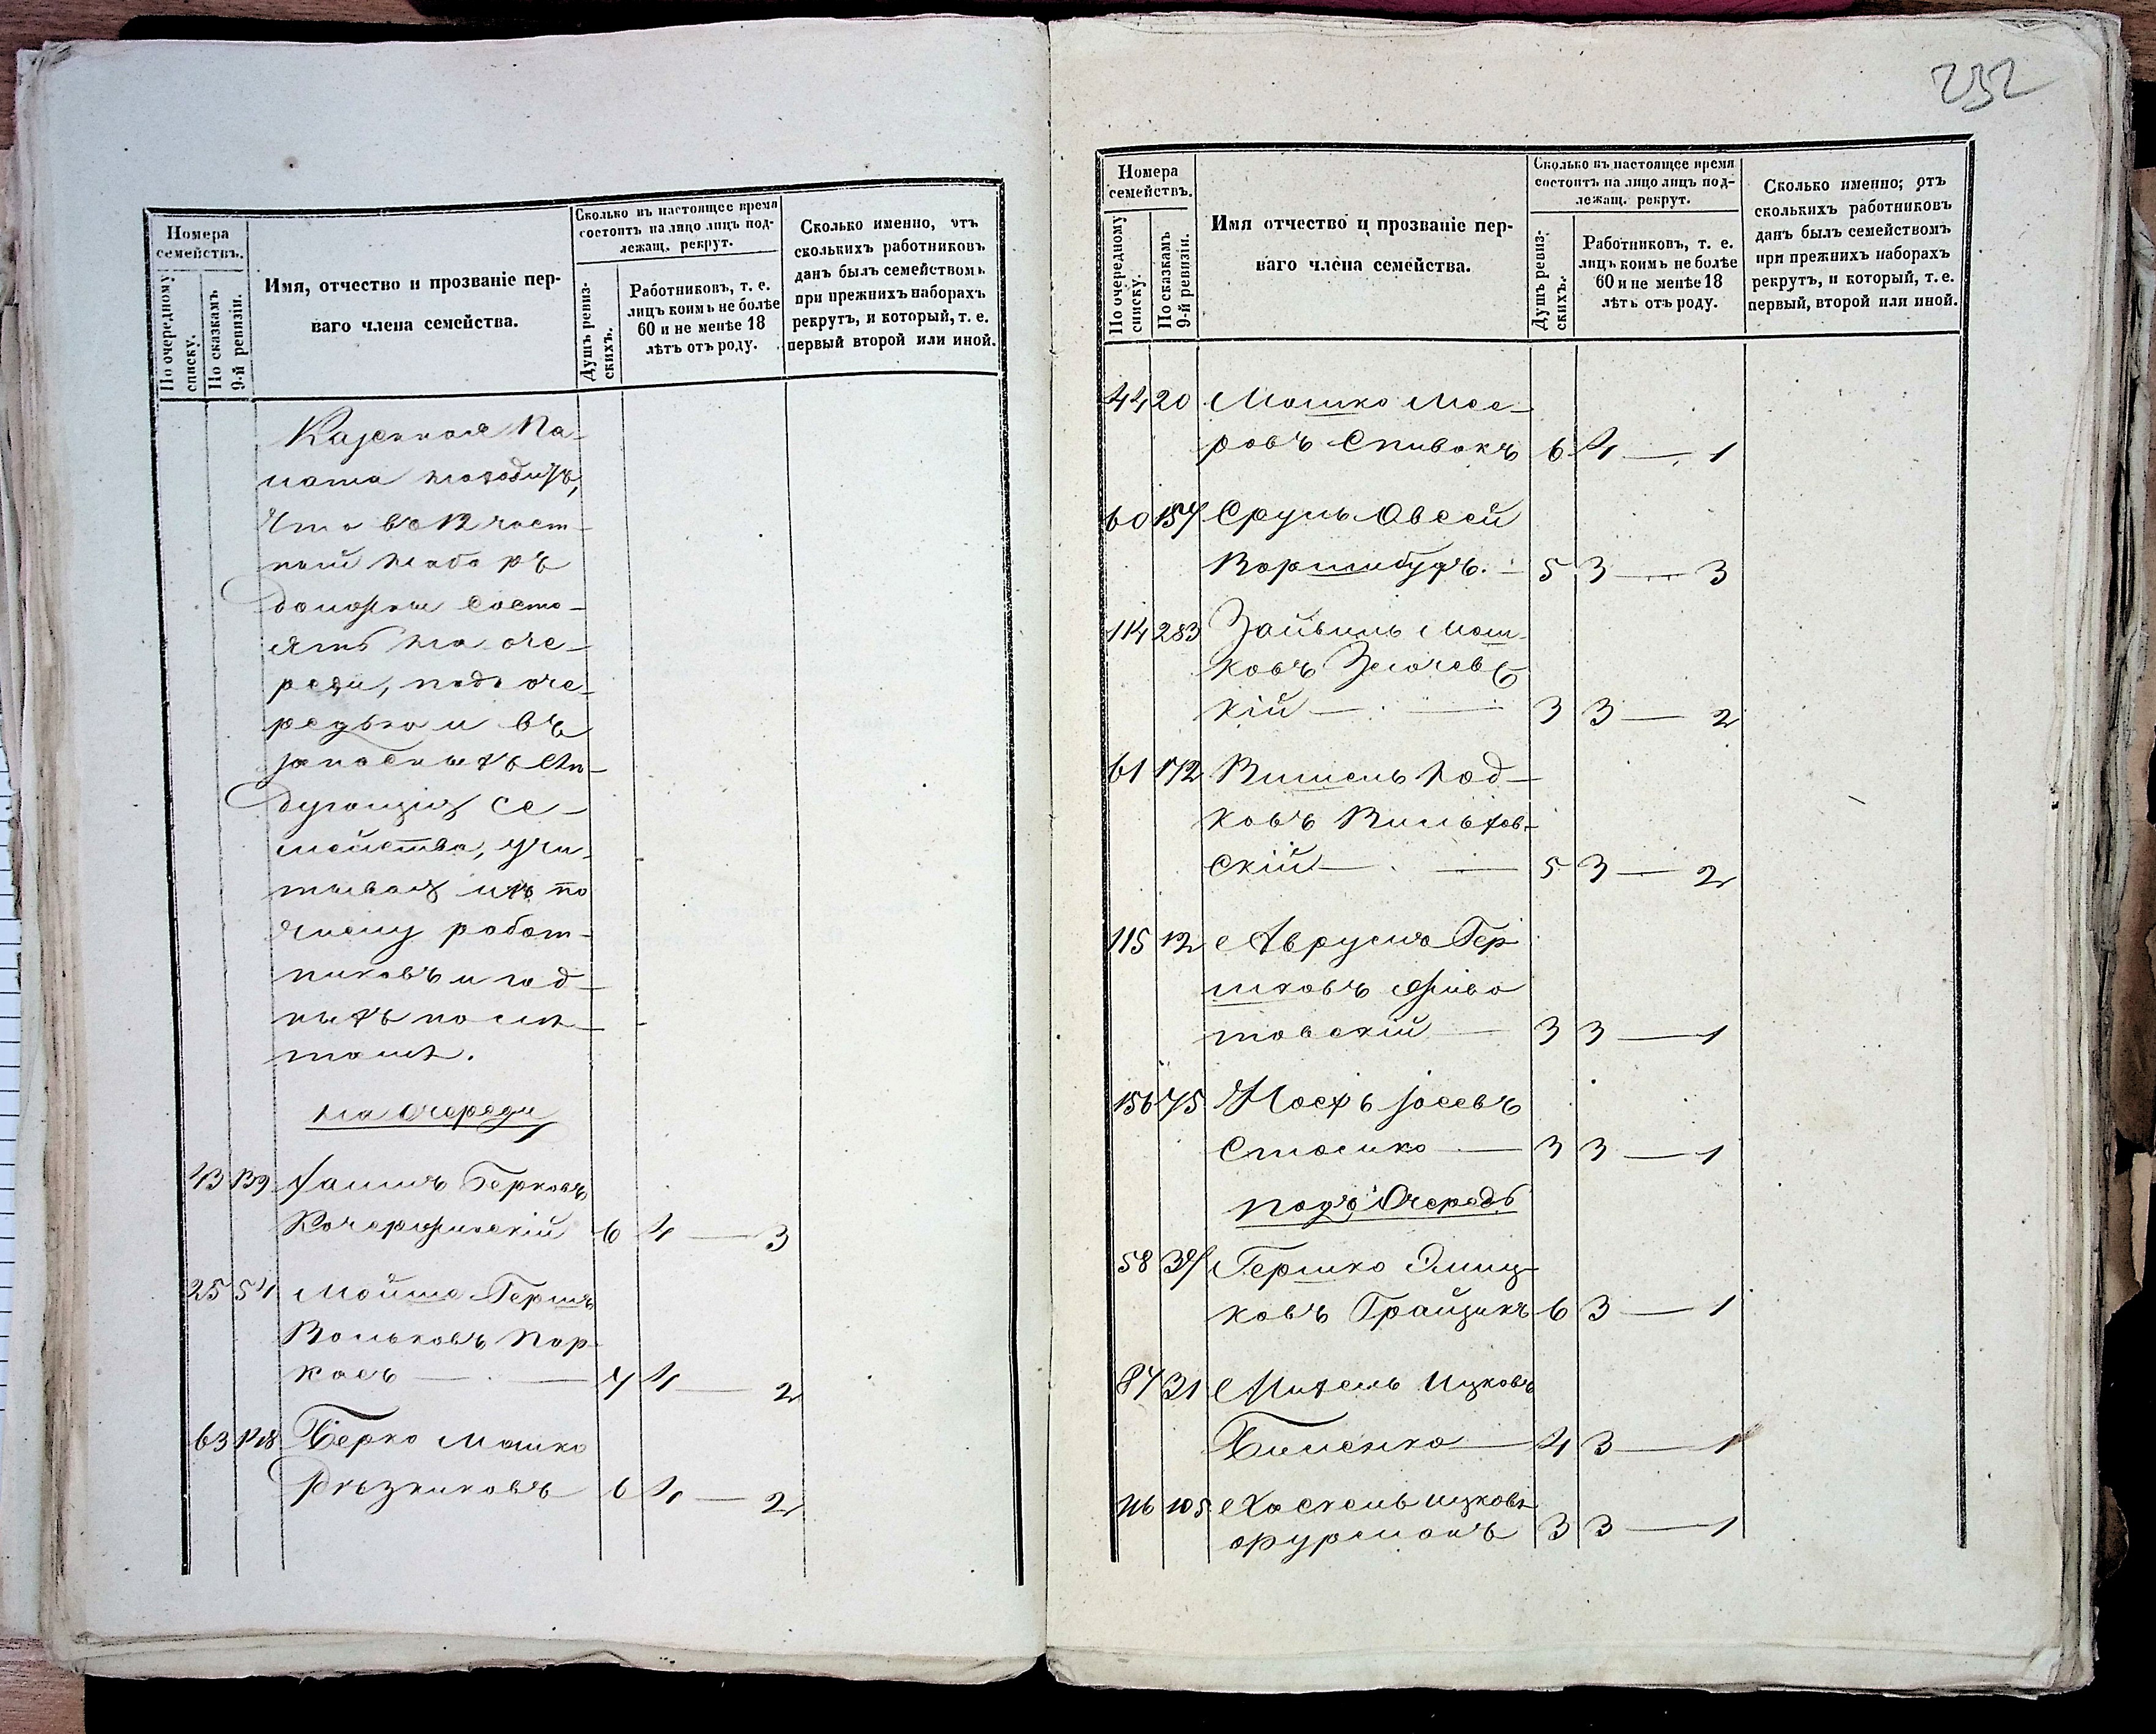 232
Номера семействъ.
По очередному списку.
По сказкамъ 9-й ревизіи.
Имя, отчество и прозваніе пер-
ваго члена семейства.
Сколько въ настоящее время
состоитъ на лицо лицъ под-
лежащ. рекрут.
Душъ ревиз-
скихъ.
Работниковъ, т. е.
лицъ коимъ не болѣе
60 и не менѣе 18
лѣтъ отъ роду.
Сколько именно, отъ
сколькихъ работниковъ
данъ былъ семействомъ
при прежнихъ наборахъ
рекрутъ, и который, т. е.
первый второй или иной.
Казенная Па-
лата находитъ,
что въ 12 част-
ный наборъ
должны состо-
ять на оче-
реди, подъ оче-
редью и въ
запасныхъ слѣ-
дующія се-
мейства, учи-
тывая ихъ по
числу работ-
никовъ и год-
ныхъ по лѣ-
тамъ.
на очереди
43 139 Хаимъ Берковъ
Кочержинскій 6 4 — 3
25 54 Мойше Гершъ
Вольковъ Пар-
касъ — 7 4 — 2
63 Берко Мошко
Рѣзниковъ 6 4 — 2
Номера
семействъ.
По очередному
списку.
По сказкамъ
9-й ревизіи.
Имя отчество и прозваніе пер-
ваго члена семейства.
Сколько въ настоящее время
состоитъ на лицо лицъ под-
лежащ. рекрут.
Душъ ревиз-
скихъ.
Работниковъ, т. е.
лицъ коимъ не болѣе
60 и не менѣе 18
лѣтъ отъ роду.
Сколько именно; отъ
сколькихъ работниковъ
данъ былъ семействомъ
при прежнихъ наборахъ
рекрутъ, и который, т. е.
первый, второй или иной.
44 20 Мошко Мее-
ровъ Спивакъ 6 4 — 1
60 157 Сруль Овсей
Варшибуръ. — 5 3 — 3
114 283 Зайвиль Мош-
ковъ Злочевс
кій — 3 3 — 2
61 172
ковъ Вильхов-
скій — 5 3 — 2
115 12 Аврумъ Гер
шковъ Живо
товскій — 3 3 — 1
156 75 Іосфъ Іосевъ
3 3 — 1
подъ Очередь
58 37 Гершко
ковъ Грайцикъ 6 3 — 1
87 31 Михель Ицковъ
Биленко — 4 3 — 1
116 105 Хаскель Ицковъ
Фурманъ 3 3 — 1